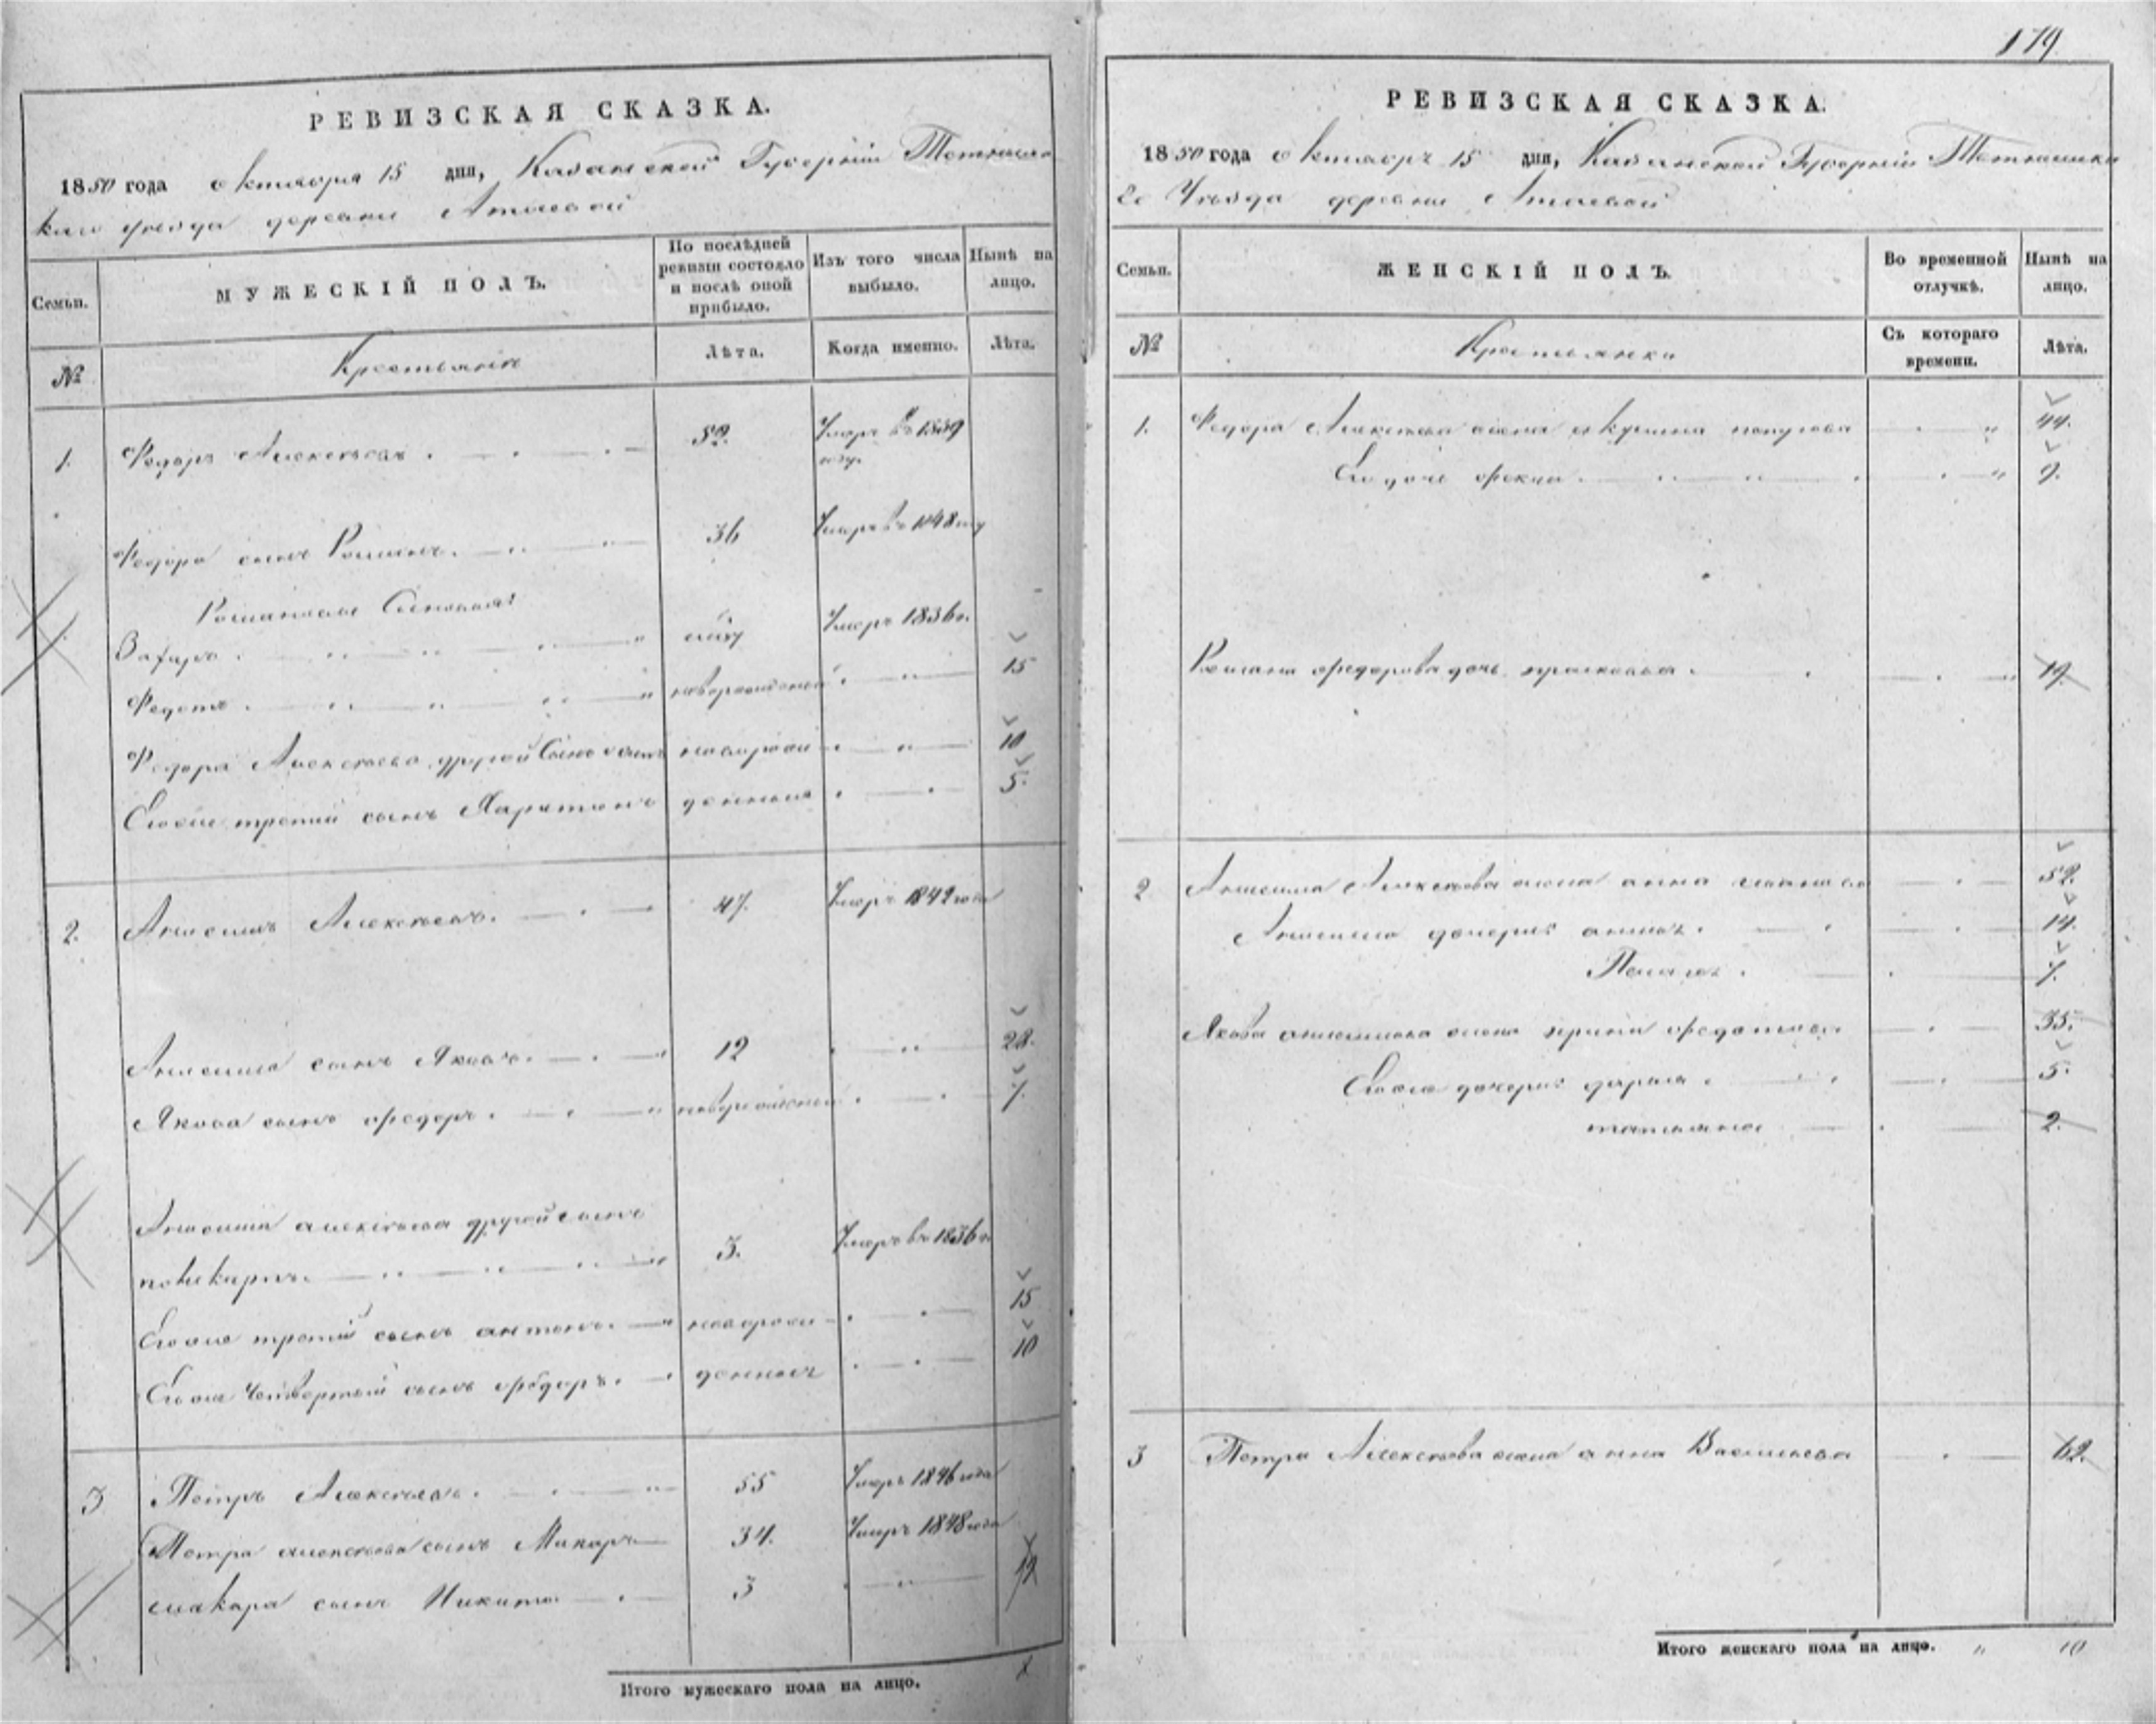 РЕВИЗСКАЯ СКАЗКА.
1850 года октября 15 дня, Казанской Губерніи Тетюшс
каго уезда деревни Атаевой
Семьи.
МУЖЕСКІЙ ПОЛЪ.
По послѣдней ревизіи состояло и послѣ оной прибыло.
Изъ того числа выбыло.
Нынѣ на лицо.
№
Крестьяне
Лѣта.
Когда именно.
Лѣта.
1. Федоръ Алексеевъ 52. Умеръ въ 1839 году.
Федора сынъ Романъ. 36 Умеръ въ 1848 году
Романовы Сыновья:
Захаръ Умеръ 1836 г.
Федотъ новорожденный 15
Федора Алексеева другой Сынъ новорож 10
Его же третий сынъ Харитонъ денныя 5.
2. Анисимъ Алексеевъ. 47. Умеръ 1842 года
Анисима сынъ Яковъ. 12 28.
Якова сынъ Федоръ. новорожденный 7.
Анисима алексеева другой сынъ
поликарпъ. 3. Умеръ въ 1836 г.
Его же третий сынъ антонъ. новорож 15
Его же Четвертый сынъ Федоръ. денныя 10
3 Петръ Алексеевъ. 55 Умеръ 1846 года
Петра алексеева сынъ Макаръ 34. Умеръ 1848 года
макара сынъ Никита 3 19
Итого мужескаго пола на лицо.
179
РЕВИЗСКАЯ СКАЗКА.
1850 года октябрь 15 дня, Казанской Губерніи Тетюшска
го Уезда деревни Атаевой
Семьи.
ЖЕНСКІЙ ПОЛЪ.
Во временной отлучкѣ.
Нынѣ на лицо.
№
Крестьянки
Съ котораго времени.
Лѣта.
1. Федора Алексеева жена акулина 44.
Его дочь фекла 9.
Романа федорова дочь прасковья 19.
2 Анисима Алексеева жена анна 52.
Анисима дочери: анна 14.
Пелагея 7.
Якова анисимова жена ирина федотова 35.
Его же дочери: дарья 5.
татьяна 2.
3 Петра Алексеева жена анна Васильева 62.
Итого женскаго пола на лицо. 10